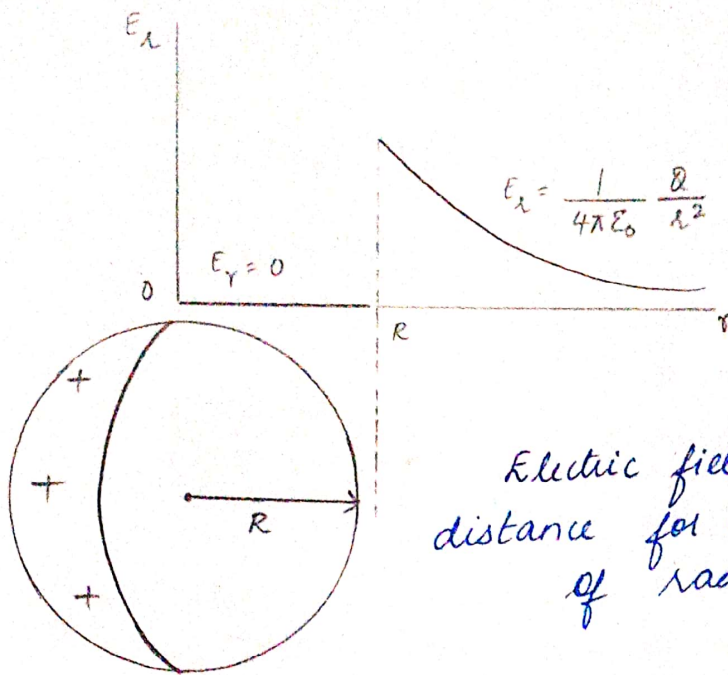 E_r
E_r = 1/4πε₀ Q/r²
E_r = 0
0
R
r
+
+
R
+
Electric
distance for
of